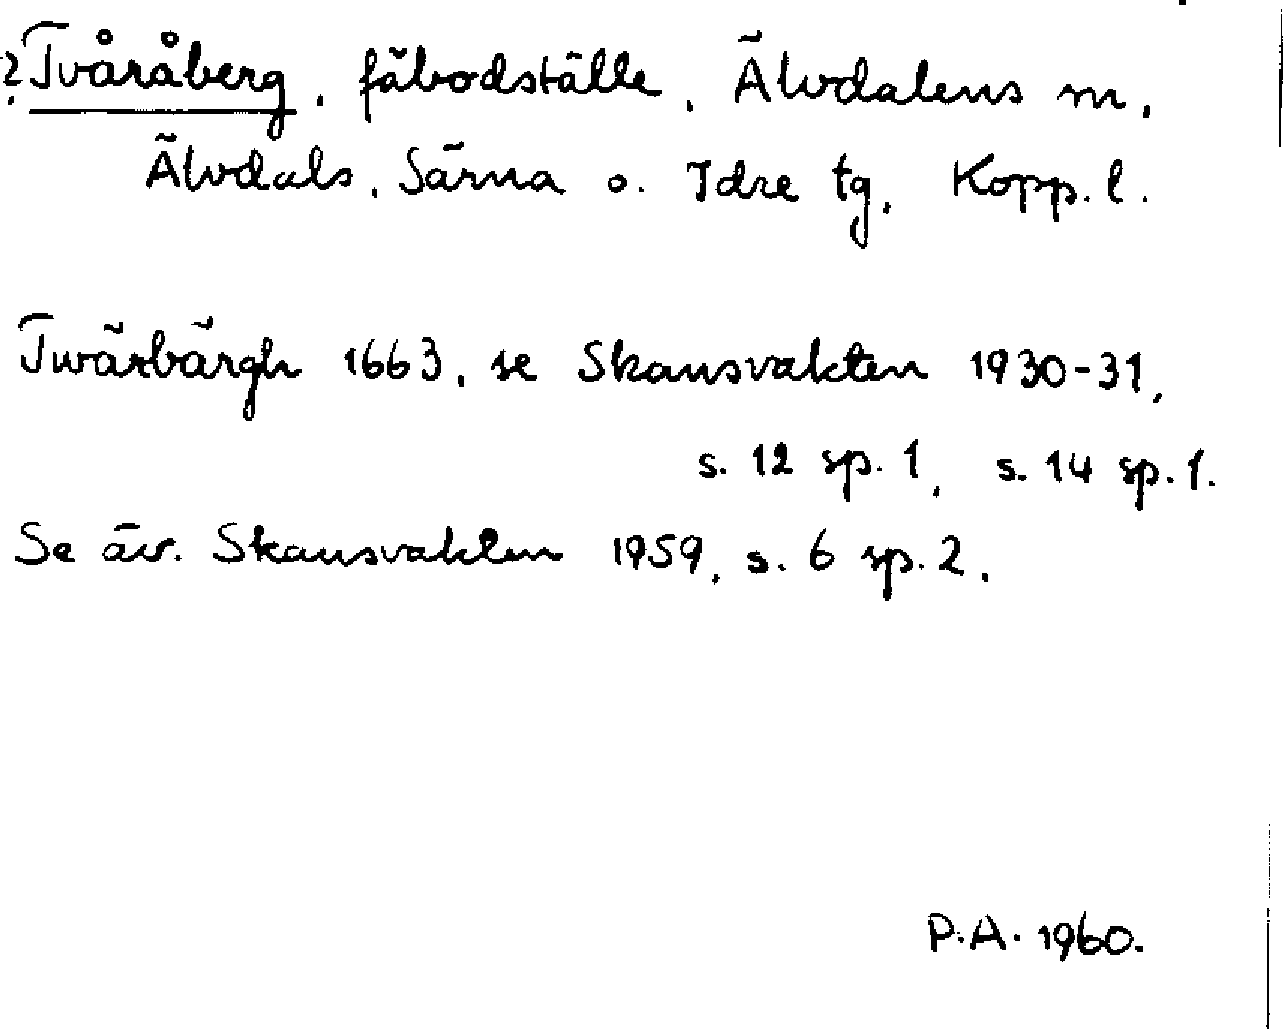 ? Tvåråberg, fäbodställe, Älvdalens m,
Älvdals, Särna o. Idre tg, Kopp. l.
Twärbärgh 1663, se Skansvakten 1930-31,
s. 12 sp. 1, s. 14 sp. 1.
Se äv. Skansvakten 1959, s. 6 sp. 2.
P.A. 1960.